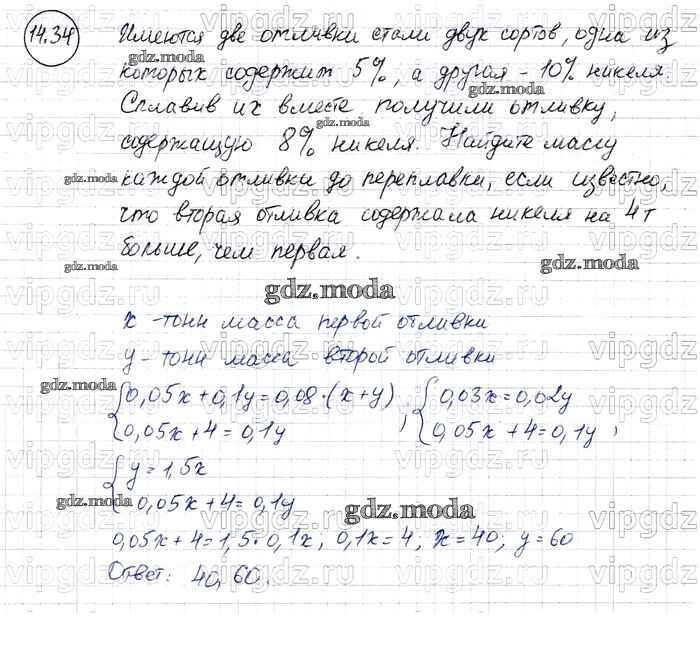 14.34 Имеются две отливки стали двух сортов, одна из
которых содержит 5%, а другая - 10% никеля.
Сплавив их вместе, получили отливку,
содержащую 8% никеля. Найдите массу
каждой отливки до переплавки, если известно,
что вторая отливка содержала никеля на 4т
больше, чем первая.
gdz.moda
x - тонн масса первой отливки
y - тонн масса второй отливки
{0,05x+0,1y=0,08·(x+y) {0,03x=0,02y
0,05x+4=0,1y , 0,05x+4=0,1y ,
{y=1,5x
0,05x+4=0,1y
gdz.moda
0,05x+4=1,5·0,1x; 0,1x=4; x=40; y=60
Ответ: 40, 60.